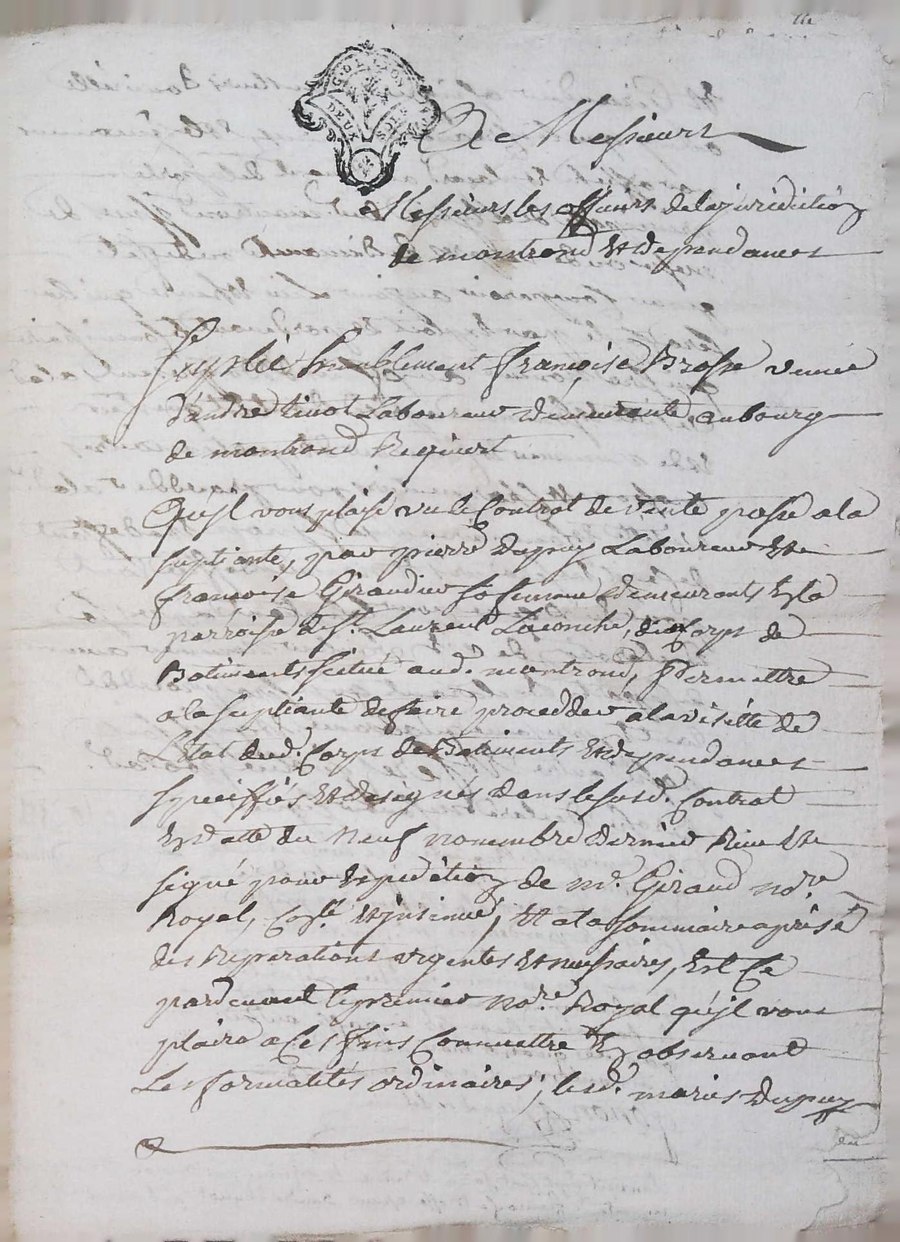 G. DE LYON
DEUX SOLS
A Messieurs
Messieurs les officiers de la jurediction
de montrond Et dependances
Supplie humblement françoise Brosse veuve
d'andre tinot Laboureur demeurante au bourg
de montrond Requiert
Qu'jl vous plaise vu le Contrat de vente passé a la
supliante, par pierre dupuy Laboureur Et
françoise Giraudier sa femme demeurants En la
parroisse de St. Laurent Laconche, du Corps de
Batiments scitué aud. montrond, permettre
a la supliante de faire proceder a la visitte de
L'Etat dud. Corps de Batiments Et dependances
speciffiés Et designés dans le susd. Contrat
En datte du neuf novembre dernier Reçu Et
signé pour Expedition de me. Giraud nore.
Royal, Collé Et jnsinué, Et a la sommaire aprise
des Reparations urgentes Et necessaires, Et Ce
pardevant le premier nore. Royal qu'jl vous
plaira a Ces fins Commettre En observant
Les formalités ordinaires; les d. mariés dupuy